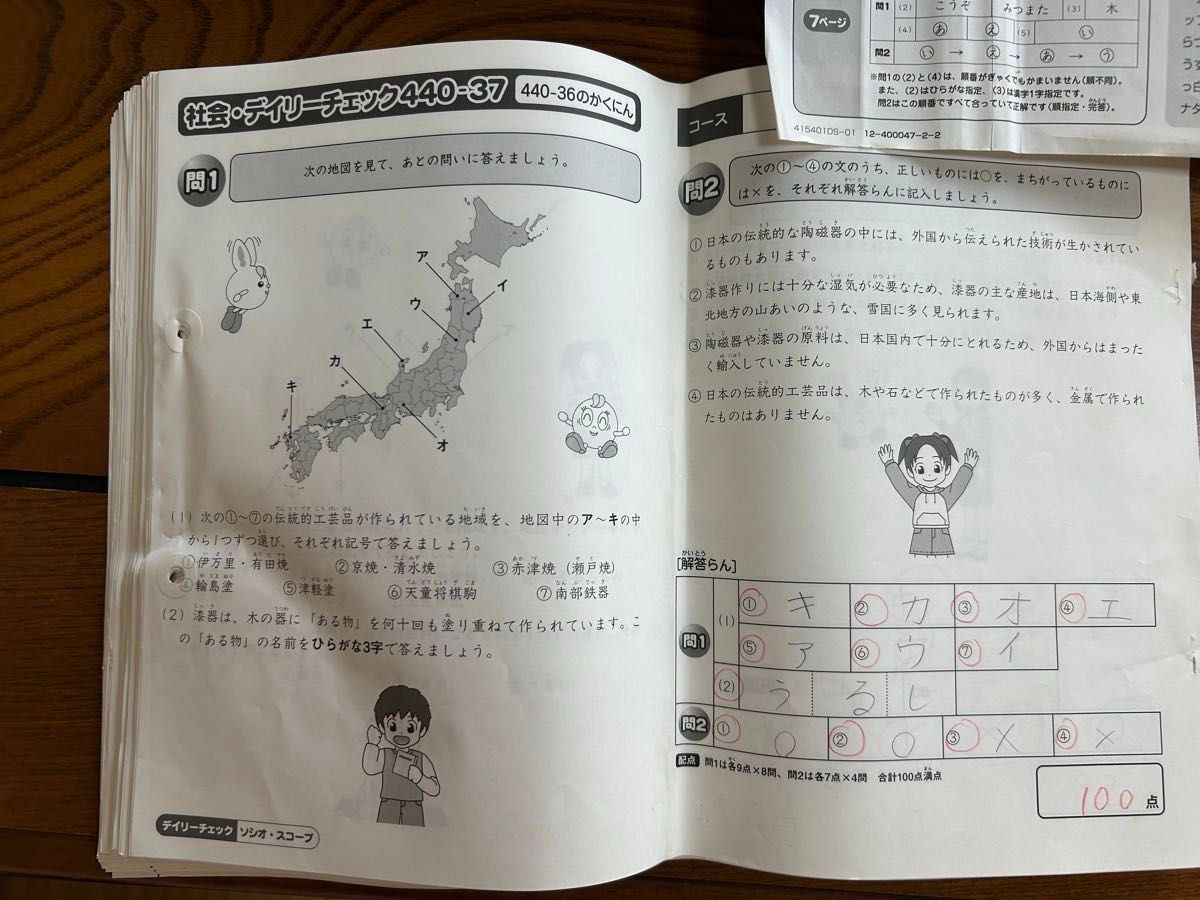 社会・デイリーチェック440-37
440-36のかくにん
問1
次の地図を見て、あとの問いに答えましょう。
ア
イ
ウ
エ
カ
キ
オ
(1) 次の①～⑦の伝統的工芸品が作られている地域を、地図中のア～キの中
から1つずつ選び、それぞれ記号で答えましょう。
①伊万里・有田焼 ②京焼・清水焼 ③赤津焼（瀬戸焼）
④輪島塗 ⑤津軽塗 ⑥天童将棋駒 ⑦南部鉄器
(2) 漆器は、木の器に「ある物」を何十回も塗り重ねて作られています。こ
の「ある物」の名前をひらがな3字で答えましょう。
デイリーチェック ソシオ・スコープ
問1 (2) こうぞ みつまた (3) 木
7ページ
(4) あ え (5) い
問2 い → え → あ → う
※問1の(2)と(4)は、順番がぎゃくでもかまいません（順不同）。
また、(2)はひらがな指定、(3)は漢字1字指定です。
問2はこの順番ですべて合っていて正解です（順指定・完答）。
415401DS-01 12-400047-2-2
コース
問2
次の①～④の文のうち、正しいものには○を、まちがっているものに
は×を、それぞれ解答らんに記入しましょう。
①日本の伝統的な陶磁器の中には、外国から伝えられた技術が生かされてい
るものもあります。
②漆器作りには十分な湿気が必要なため、漆器の主な産地は、日本海側や東
北地方の山あいのような、雪国に多く見られます。
③陶磁器や漆器の原料は、日本国内で十分にとれるため、外国からはまった
く輸入していません。
④日本の伝統的工芸品は、木や石などで作られたものが多く、金属で作られ
たものはありません。
[解答らん]
問1 (1) ① キ ② カ ③ オ ④ エ
⑤ ア ⑥ ウ ⑦ イ
(2) うるし
問2 ① ○ ② ○ ③ × ④ ×
配点 問1は各9点×8問、問2は各7点×4問 合計100点満点
100点